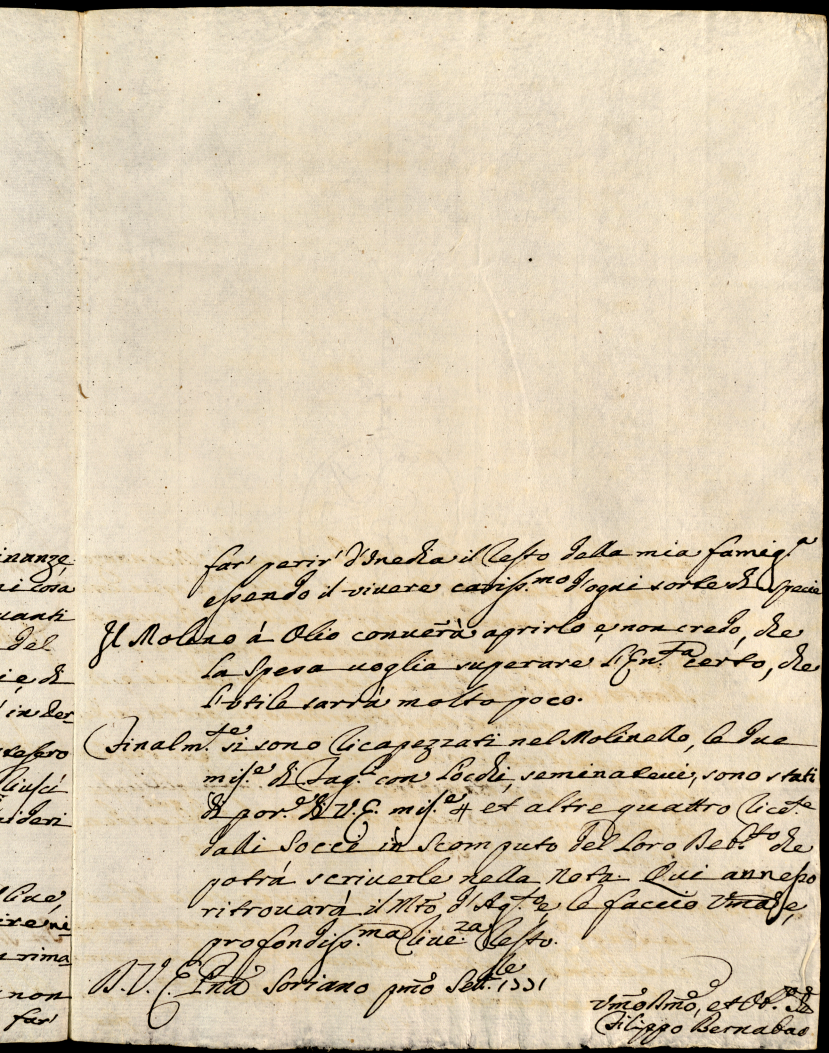 inanze
ni cosa
uanti
del
ie di
in der=
tesero
Riuscì
sideri
Riue,
ire ni=
rima=
non
far'
far' perir' d'Inedia il Resto della mia famig.a
essendo il vivere cariss.mo d'ogni sorte di specie
Il Molino á Olio converrà aprirlo, e non credo, che
la Spesa voglia superare l'En.ta certo, che
l'Utile sarrà molto poco.
Finalm.te si sono Ricapezzati nel Molinello, le due
mis.e di Fag.li con Locchi, seminatevi, sono stati
di por.e di V.E. mis.e 4 et altre quattro Rice.te
dalli Socci in Scomputo del Loro Deb.to che
potrà scriverle nella Nota. Qui annesso
ritrovarà il Mto d'Ag.to, e le faccio Vma, e
profondiss.ma Rive.za Resto.
D. V. E. Pna Soriano pmo Sett.re 1731
Vmo Dmo, et Ob. Se
Filippo Bernabao